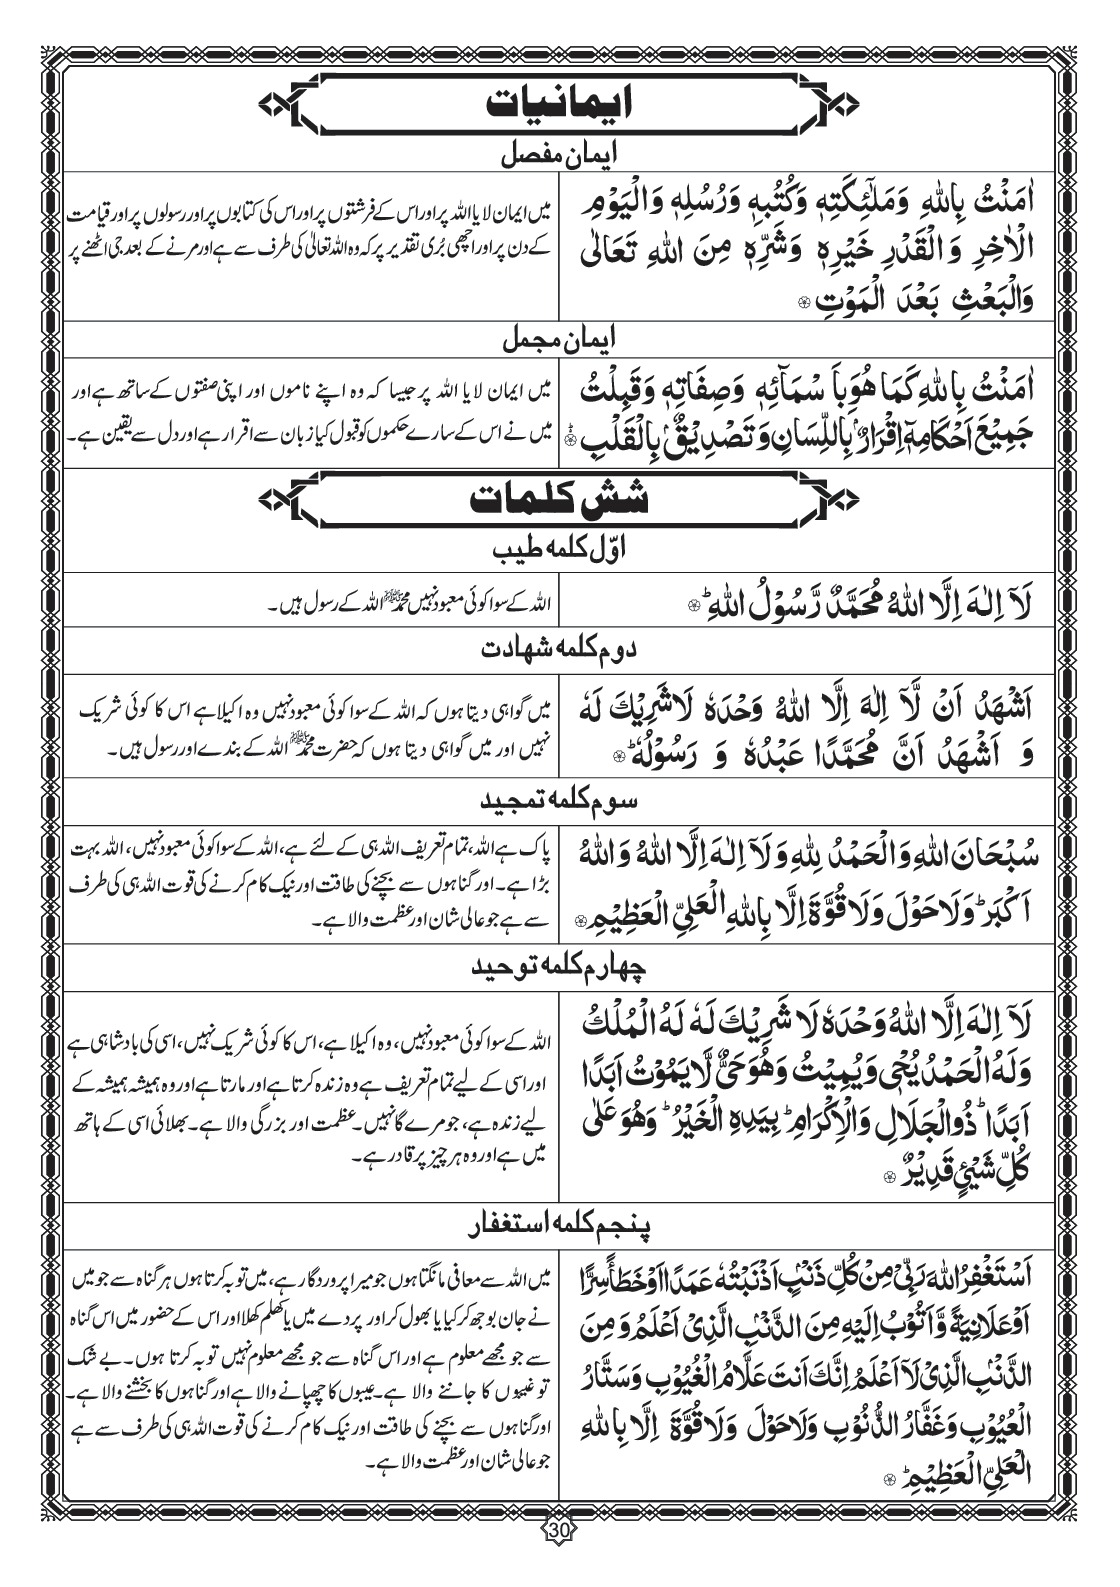 ایمانیات
ایمان مفصل
اٰمَنْتُ بِاللهِ وَمَلٰٓئِكَتِهٖ وَكُتُبِهٖ وَرُسُلِهٖ وَالْيَوْمِ
الْاٰخِرِ وَالْقَدْرِ خَيْرِهٖ وَشَرِّهٖ مِنَ اللهِ تَعَالٰى
وَالْبَعْثِ بَعْدَ الْمَوْتِ
میں ایمان لایا اللہ پر اور اس کے فرشتوں پر اور اس کی کتابوں پر اور رسولوں پر اور قیامت
کے دن پر اور اچھی بُری تقدیر پر کہ وہ اللہ تعالیٰ کی طرف سے ہے اور مرنے کے بعد جی اٹھنے پر
ایمان مجمل
اٰمَنْتُ بِاللهِ كَمَا هُوَ بِاَسْمَآئِهٖ وَصِفَاتِهٖ وَقَبِلْتُ
جَمِيْعَ اَحْكَامِهٖٓ اِقْرَارٌ ۢ بِاللِّسَانِ وَتَصْدِيْقٌ ۢ بِالْقَلْبِ ؕ
میں ایمان لایا اللہ پر جیسا کہ وہ اپنے ناموں اور اپنی صفتوں کے ساتھ ہے اور
میں نے اس کے سارے حکموں کو قبول کیا زبان سے اقرار ہے اور دل سے یقین ہے۔
شش کلمات
اوّل کلمه طیب
لَآ اِلٰهَ اِلَّا اللهُ مُحَمَّدٌ رَّسُوْلُ اللهِ ؕ
اللہ کے سوا کوئی معبود نہیں محمد ﷺ اللہ کے رسول ہیں۔
دوم کلمه شهادت
اَشْهَدُ اَنْ لَّآ اِلٰهَ اِلَّا اللهُ وَحْدَهٗ لَاشَرِيْكَ لَهٗ
وَ اَشْهَدُ اَنَّ مُحَمَّدًا عَبْدُهٗ وَ رَسُوْلُهٗ ؕ
میں گواہی دیتا ہوں کہ اللہ کے سوا کوئی معبود نہیں وہ اکیلا ہے اس کا کوئی شریک
نہیں اور میں گواہی دیتا ہوں کہ حضرت محمد ﷺ اللہ کے بندے اور رسول ہیں۔
سوم کلمه تمجید
سُبْحَانَ اللهِ وَالْحَمْدُ لِلهِ وَلَآ اِلٰهَ اِلَّا اللهُ وَاللهُ
اَكْبَرُ ؕ وَلَا حَوْلَ وَلَا قُوَّةَ اِلَّا بِاللهِ الْعَلِيِّ الْعَظِيْمِ
پاک ہے اللہ، تمام تعریف اللہ ہی کے لئے ہے، اللہ کے سوا کوئی معبود نہیں، اللہ بہت
بڑا ہے۔ اور گناہوں سے بچنے کی طاقت اور نیک کام کرنے کی قوت اللہ ہی کی طرف
سے ہے جو عالی شان اور عظمت والا ہے۔
چهارم کلمه توحید
لَآ اِلٰهَ اِلَّا اللهُ وَحْدَهٗ لَا شَرِيْكَ لَهٗ لَهُ الْمُلْكُ
وَلَهُ الْحَمْدُ يُحْيٖ وَيُمِيْتُ وَهُوَ حَيٌّ لَّا يَمُوْتُ اَبَدًا
اَبَدًا ؕ ذُوالْجَلَالِ وَالْاِكْرَامِ ؕ بِيَدِهِ الْخَيْرُ ؕ وَهُوَ عَلٰى
كُلِّ شَيْئٍ قَدِيْرٌ
اللہ کے سوا کوئی معبود نہیں، وہ اکیلا ہے، اس کا کوئی شریک نہیں، اسی کی بادشاہی ہے
اور اسی کے لیے تمام تعریف ہے وہ زندہ کرتا ہے اور مارتا ہے اور وہ ہمیشہ ہمیشہ کے
لیے زندہ ہے، جو مرے گا نہیں۔ عظمت اور بزرگی والا ہے۔ بھلائی اسی کے ہاتھ
میں ہے اور وہ ہر چیز پر قادر ہے۔
پنجم کلمه استغفار
اَسْتَغْفِرُ اللهَ رَبِّيْ مِنْ كُلِّ ذَنْبٍ اَذْنَبْتُهٗ عَمَدًا اَوْ خَطَأً سِرًّا
اَوْ عَلَانِيَةً وَّاَتُوْبُ اِلَيْهِ مِنَ الذَّنْبِ الَّذِيْ اَعْلَمُ وَمِنَ
الذَّنْبِ الَّذِيْ لَآ اَعْلَمُ اِنَّكَ اَنْتَ عَلَّامُ الْغُيُوْبِ وَسَتَّارُ
الْعُيُوْبِ وَغَفَّارُ الذُّنُوْبِ وَلَا حَوْلَ وَلَا قُوَّةَ اِلَّا بِاللهِ
الْعَلِيِّ الْعَظِيْمِ ؕ
میں اللہ سے معافی مانگتا ہوں جو میرا پروردگار ہے، میں توبہ کرتا ہوں ہر گناہ سے جو میں
نے جان بوجھ کر کیا یا بھول کر اور پردے میں یا کھلم کھلا اور اس کے حضور میں اس گناہ
سے جو مجھے معلوم ہے اور اس گناہ سے جو مجھے معلوم نہیں توبہ کرتا ہوں۔ بے شک
تو غیبوں کا جاننے والا ہے۔ عیبوں کا چھپانے والا ہے اور گناہوں کا بخشنے والا ہے۔
اور گناہوں سے بچنے کی طاقت اور نیک کام کرنے کی قوت اللہ ہی کی طرف سے ہے
جو عالی شان اور عظمت والا ہے۔
30